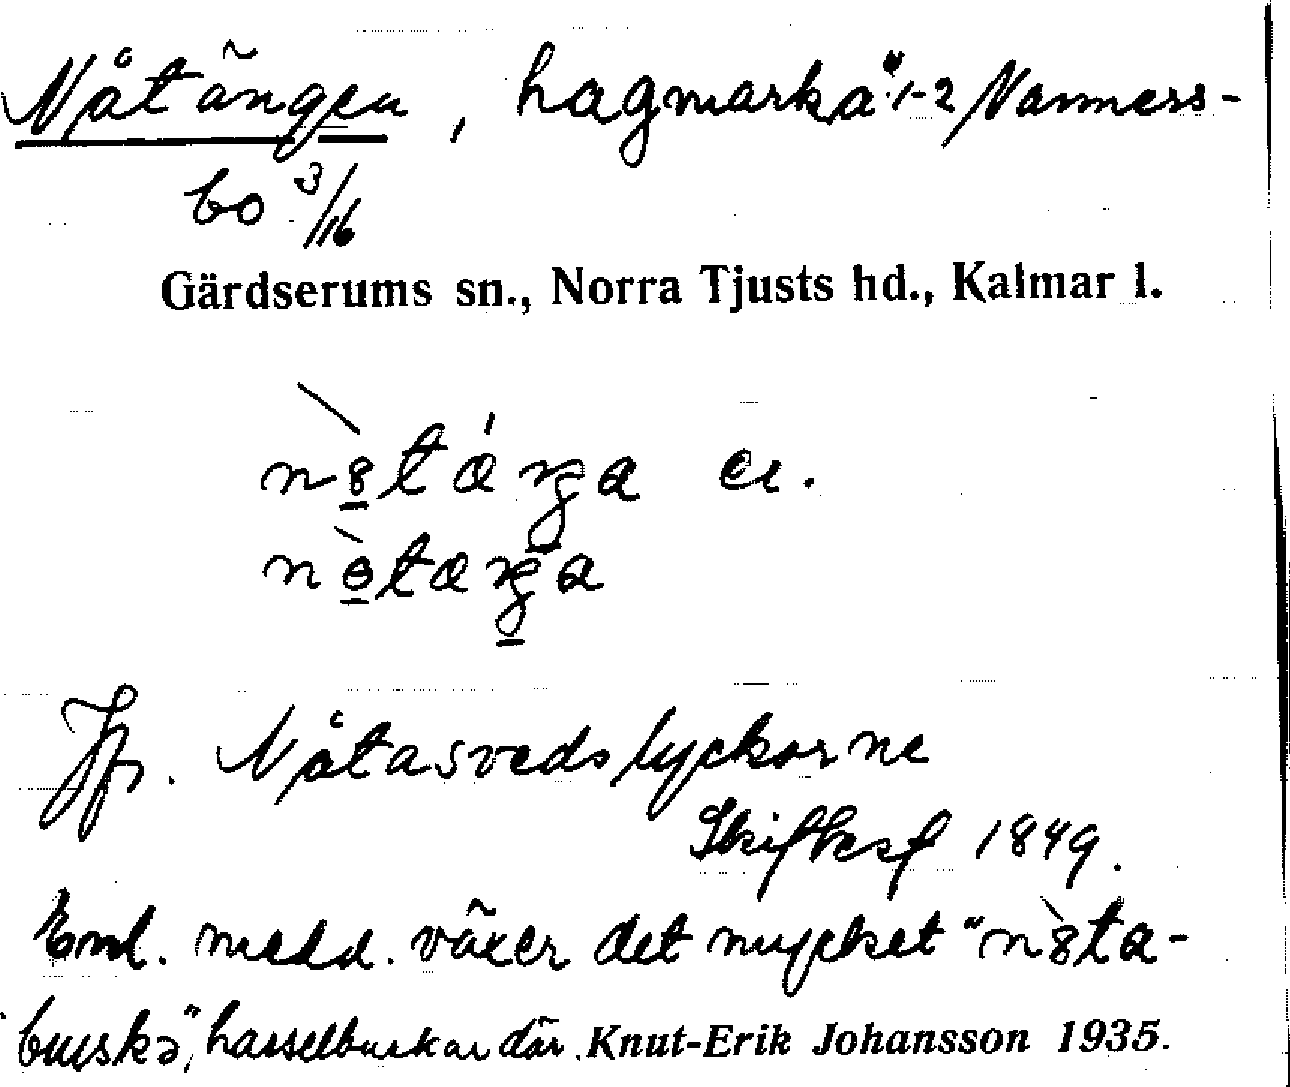 Nåtängen, hagmarka" 1-2 Vammers-
bo 3/16
Gärdserums sn., Norra Tjusts hd., Kalmar l.
el.
Jfr. Nåtasvedslyckorne
Skifteskf 1849.
Enl. medd. växer det mycket "nòta-
buskə", hasselbuskar där. Knut-Erik Johansson 1935.